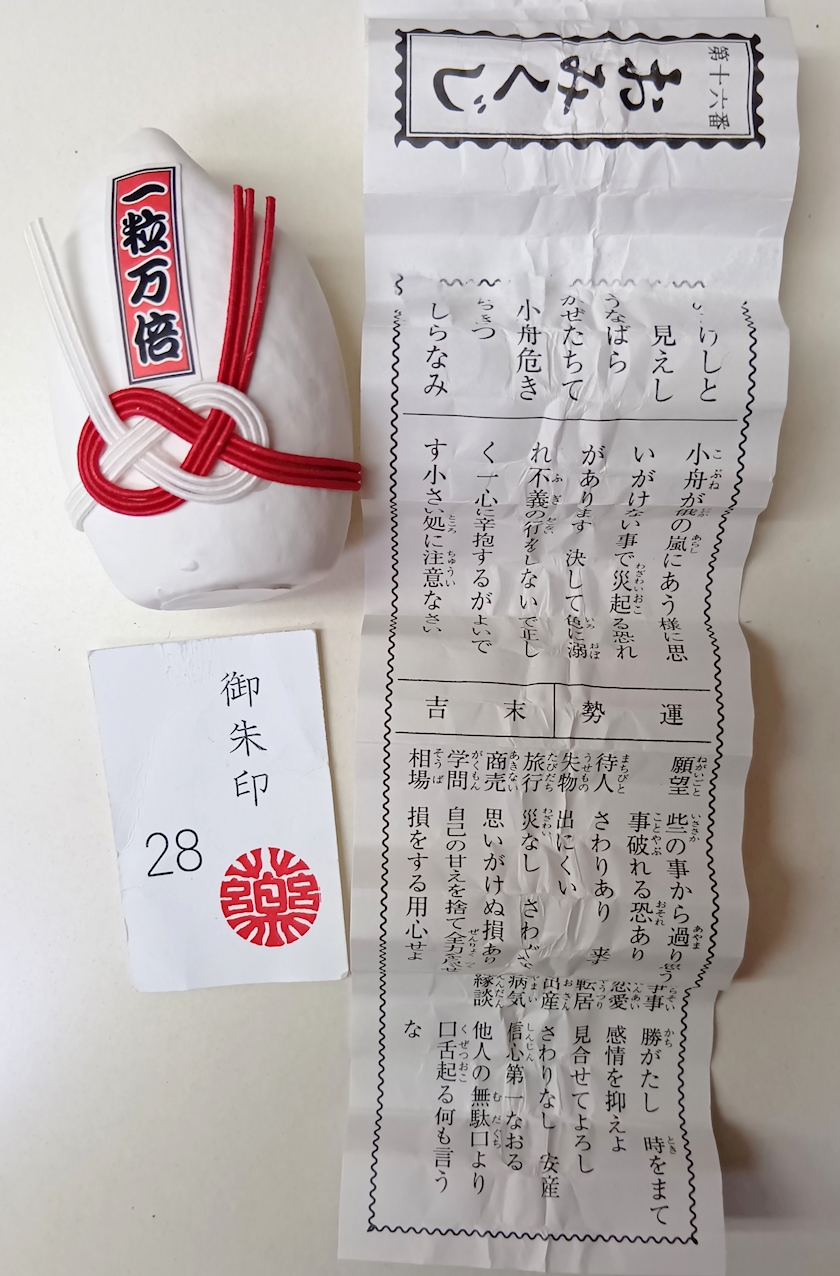 一粒万倍
御朱印
28
第十六番
おみくじ
けしと
見えし
うなばら
かぜたちて
小舟危き
つ
しらなみ
小舟が俄の嵐にあう様に思
いがけない事で災起る恐れ
があります 決して色に溺
れ不義の行をしないで正し
く一心に辛抱するがよいで
す小さい処に注意なさい
運勢
末吉
願望 些の事から過り
事破れる恐あり
待人 さわりあり
失物 出にくい
旅行 災なし さわ
商売 思いがけぬ損あり
学問 自己の甘えを捨て全力尽せ
相場 損をする用心せよ
争事 勝がたし 時をまて
恋愛 感情を抑えよ
転居 見合せてよろし
出産 さわりなし 安産
病気 信心第一なおる
縁談 他人の無駄口より
口舌起る何も言う
な